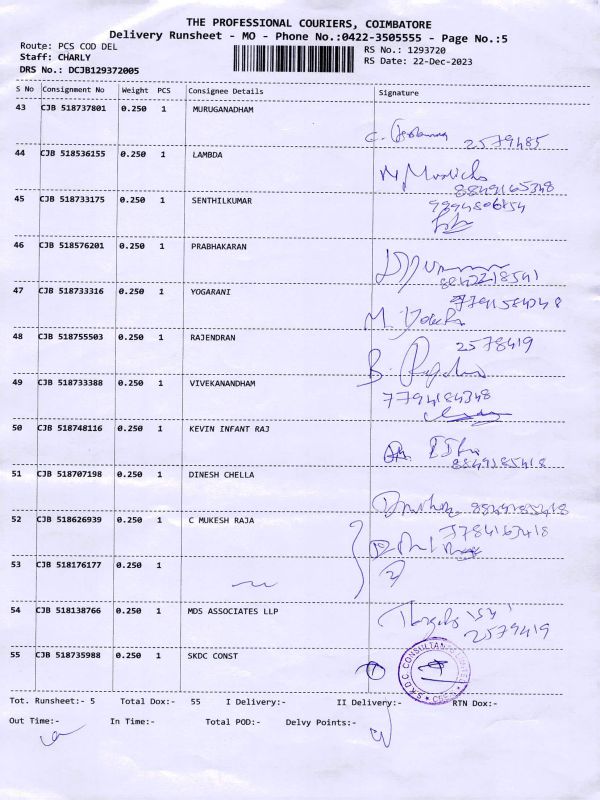 THE PROFESSIONAL COURIERS, COIMBATORE
Delivery Runsheet - MO - Phone No.:0422-3505555 - Page No.:5
Route: PCS COD DEL
RS No.: 1293720
Staff: CHARLY
RS Date: 22-Dec-2023
DRS No.: DCJB129372005
S No Consignment No Weight PCS Consignee Details Signature
43 CJB 518737801 0.250 1 MURUGANADHAM
2579485
44 CJB 518536155 0.250 1 LAMBDA
8849165348
45 CJB 518733175 0.250 1 SENTHILKUMAR
46 CJB 518576201 0.250 1 PRABHAKARAN
47 CJB 518733316 0.250 1 YOGARANI
48 CJB 518755503 0.250 1 RAJENDRAN
2578419
49 CJB 518733388 0.250 1 VIVEKANANDHAM
7794184348
50 CJB 518748116 0.250 1 KEVIN INFANT RAJ
8849185418
51 CJB 518707198 0.250 1 DINESH CHELLA
52 CJB 518626939 0.250 1 C MUKESH RAJA
53 CJB 518176177 0.250 1
54 CJB 518138766 0.250 1 MDS ASSOCIATES LLP
2579419
55 CJB 518735988 0.250 1 SKDC CONST
Tot. Runsheet:- 5 Total Dox:- 55 I Delivery:- II Delivery:- RTN Dox:-
Out Time:- In Time:- Total POD:- Delvy Points:-